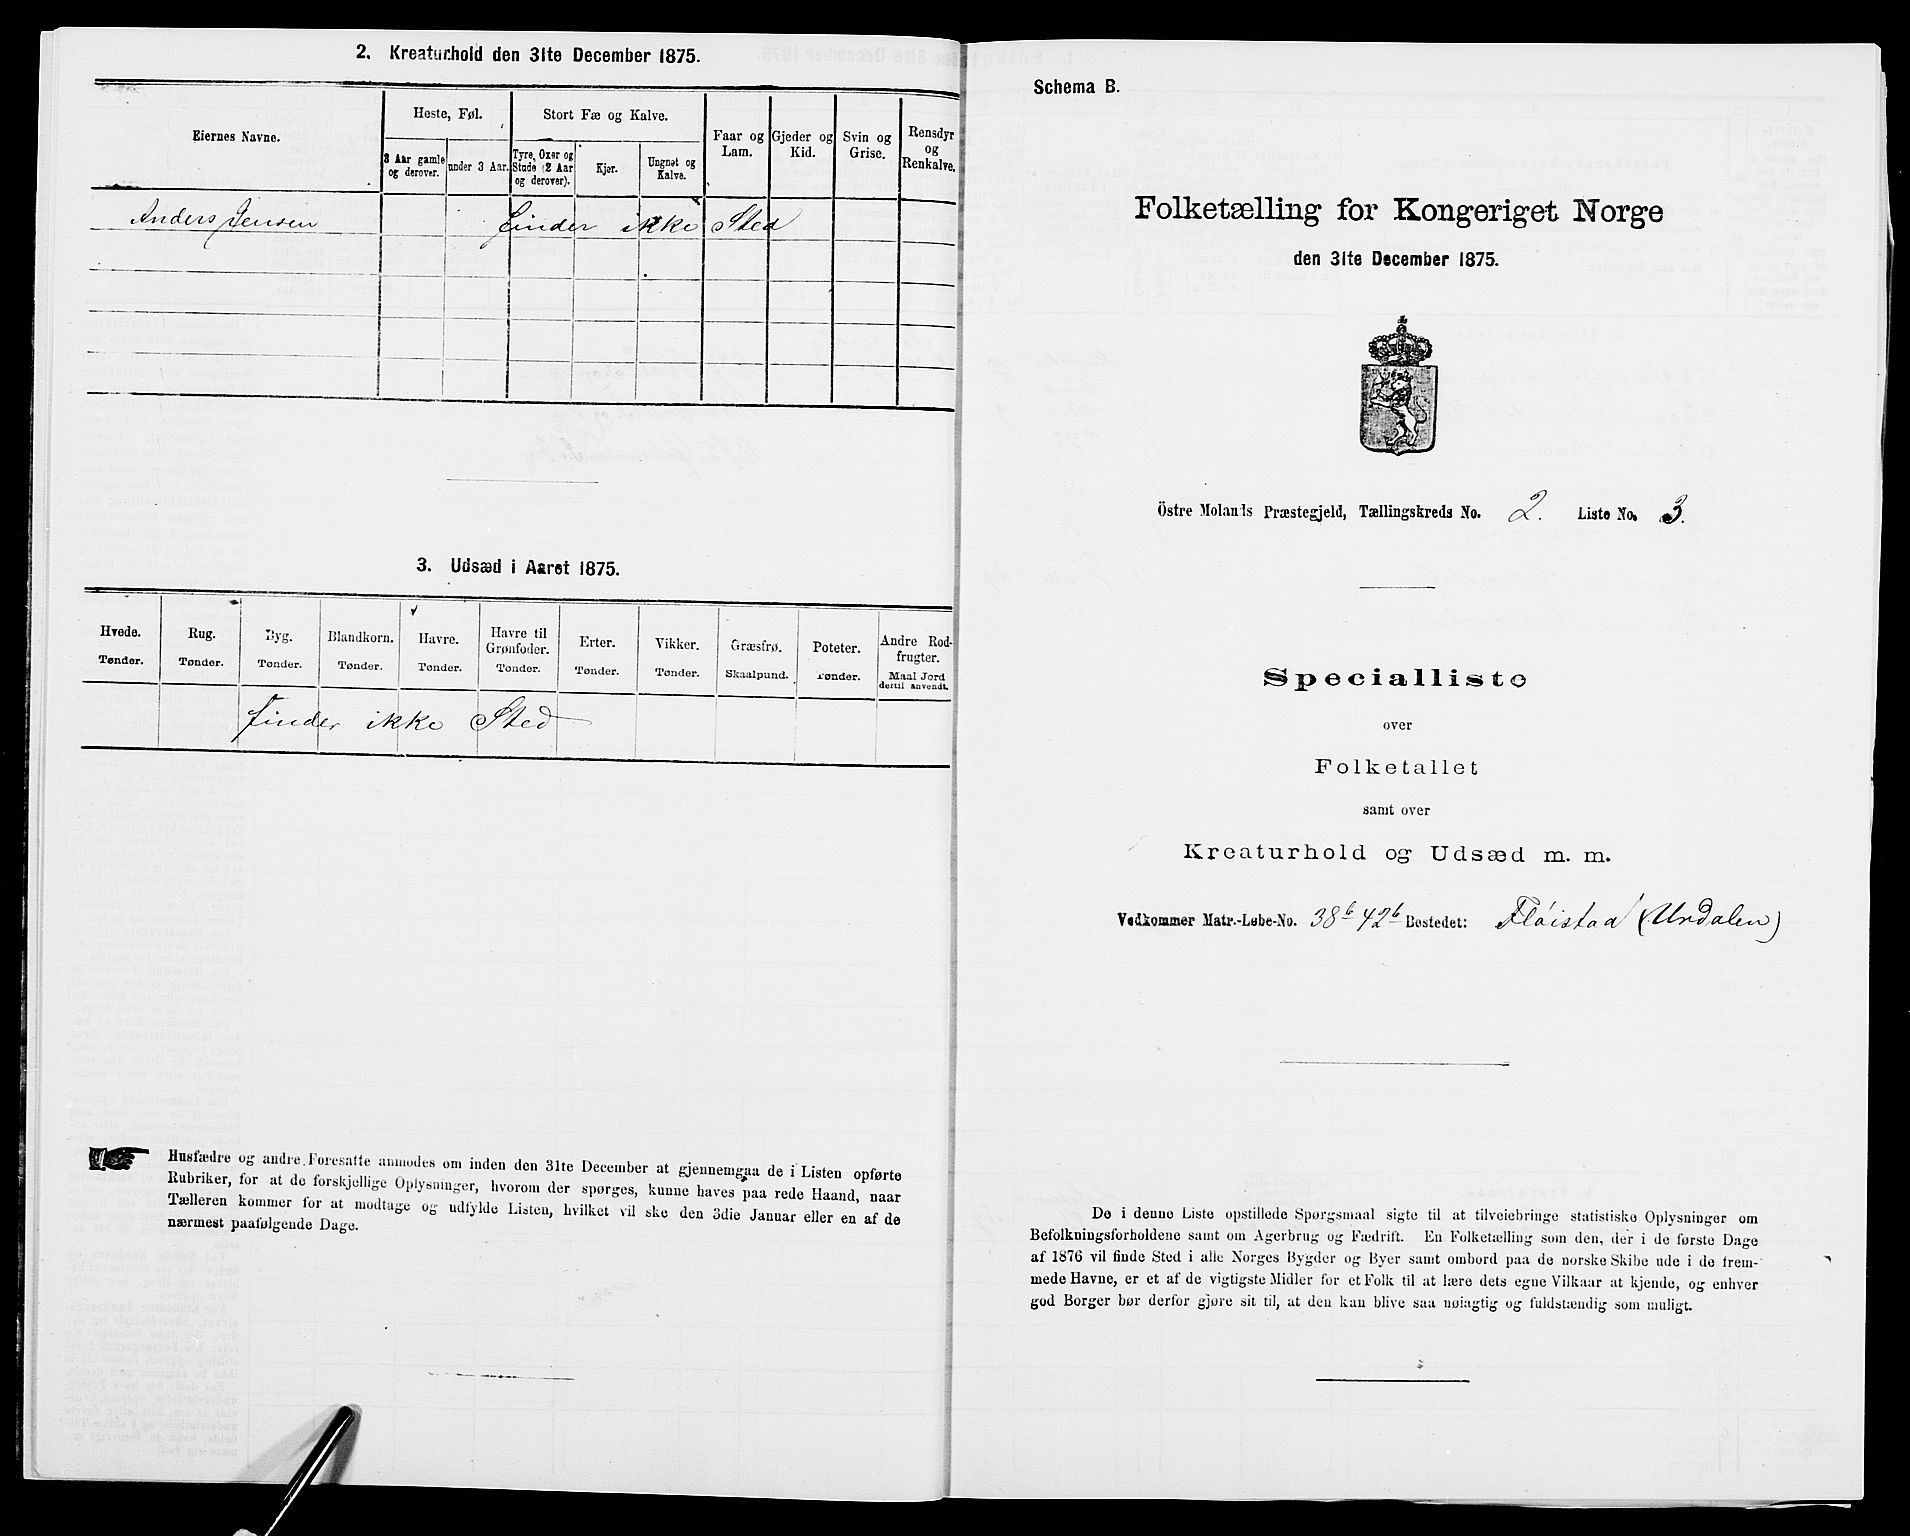 2. Kreaturhold den 31te December 1875.
Eiernes Navne.
Heste, Føl.
3 Aar gamle og derover.
under 3 Aar.
Stort Fæ og Kalve.
Tyre, Oxer og Stude (2 Aar og derover).
Kjør.
Ungnøt og Kalve.
Faar og Lam.
Gjeder og Kid.
Svin og Grise.
Rensdyr og Renkalve.
Anders Jensen finder ikke Sted
3. Udsæd i Aaret 1875.
Hvede. Rug. Byg. Blandkorn. Havre. Havre til Grønfoder. Erter. Vikker. Græsfrø. Poteter. Andre Rodfrugter.
Tønder. Tønder. Tønder. Tønder. Tønder. Tønder. Tønder. Tønder. Skaalpund. Tønder. Maal Jord dertil anvendt.
finder ikke Sted
Husfædre og andre Foresatte anmodes om inden den 31te December at gjennemgaa de i Listen opførte
Rubriker, for at de forskjellige Oplysninger, hvorom der spørges, kunne haves paa rede Haand, naar
Tælleren kommer for at modtage og udfylde Listen, hvilket vil ske den 3die Januar eller en af de
nærmest paafølgende Dage.
Schema B.
Folketælling for Kongeriget Norge
den 31te December 1875.
Östre Molands Præstegjeld, Tællingskreds No. 2. Liste No. 3.
Specialliste
over
Folketallet
samt over
Kreaturhold og Udsæd m. m.
Vedkommer Matr.-Løbe-No. 38b 42b Bostedet: Fløistad (Urdalen)
De i denne Liste opstillede Spørgsmaal sigte til at tilveiebringe statistiske Oplysninger om
Befolkningsforholdene samt om Agerbrug og Fædrift. En Folketælling som den, der i de første Dage
af 1876 vil finde Sted i alle Norges Bygder og Byer samt ombord paa de norske Skibe ude i de frem-
mede Havne, er et af de vigtigste Midler for et Folk til at lære dets egne Vilkaar at kjende, og enhver
god Borger bør derfor gjøre sit til, at den kan blive saa nøiagtig og fuldstændig som muligt.